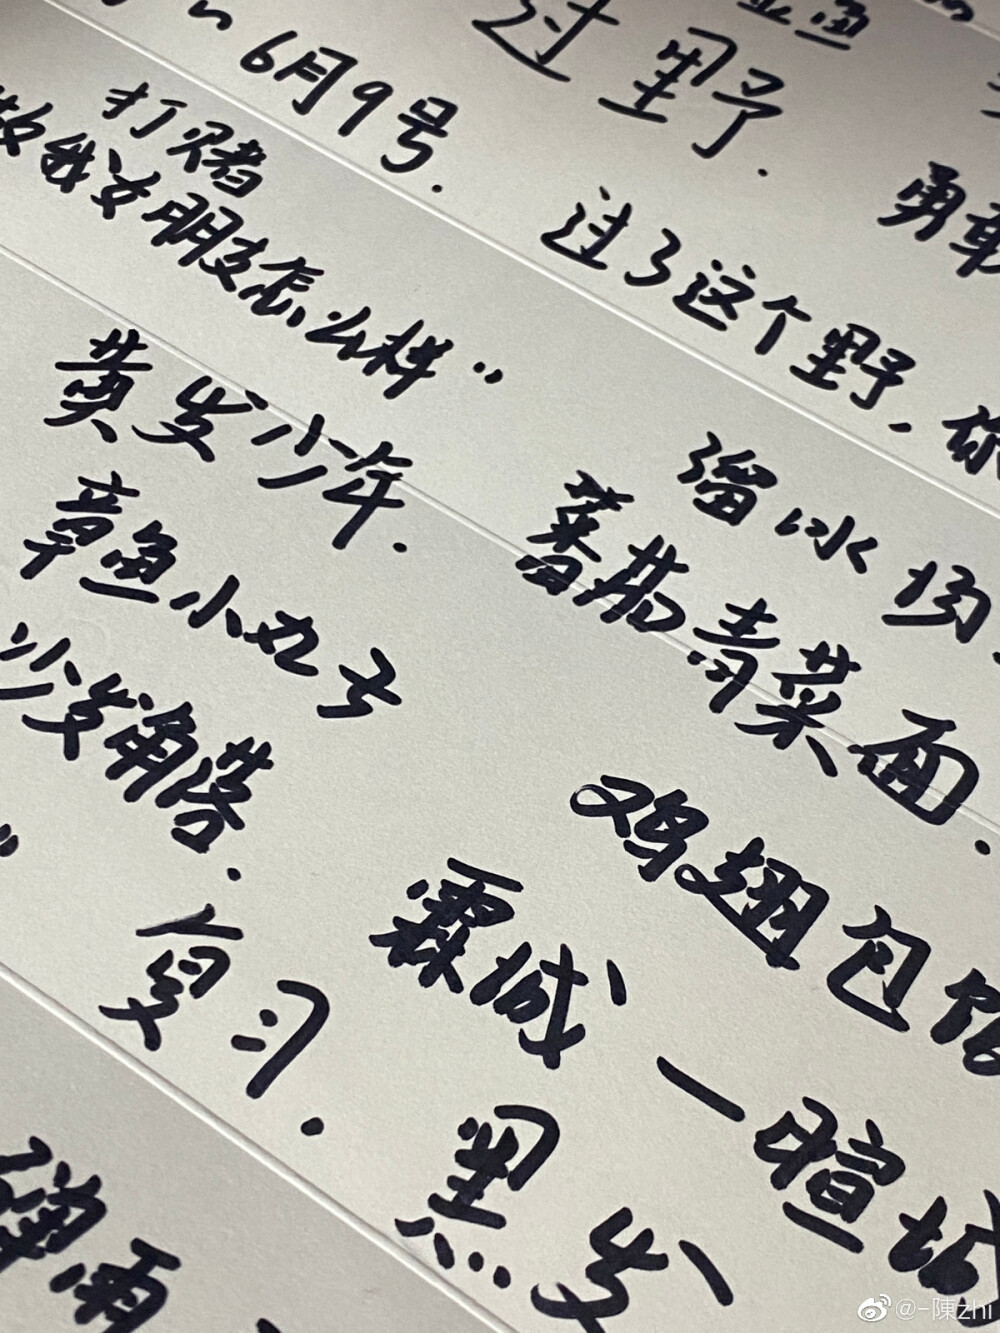 过野.
6月9号.
勇敢
打赌
做我女朋友怎么样”
过了这个野,你
黄发少年.
溜冰场.
章鱼小丸子
番茄青菜面.
沙发角落.
鸡翅包饭
霖城
复习.
一暄城
黑发
弹雨
@-陳zhi